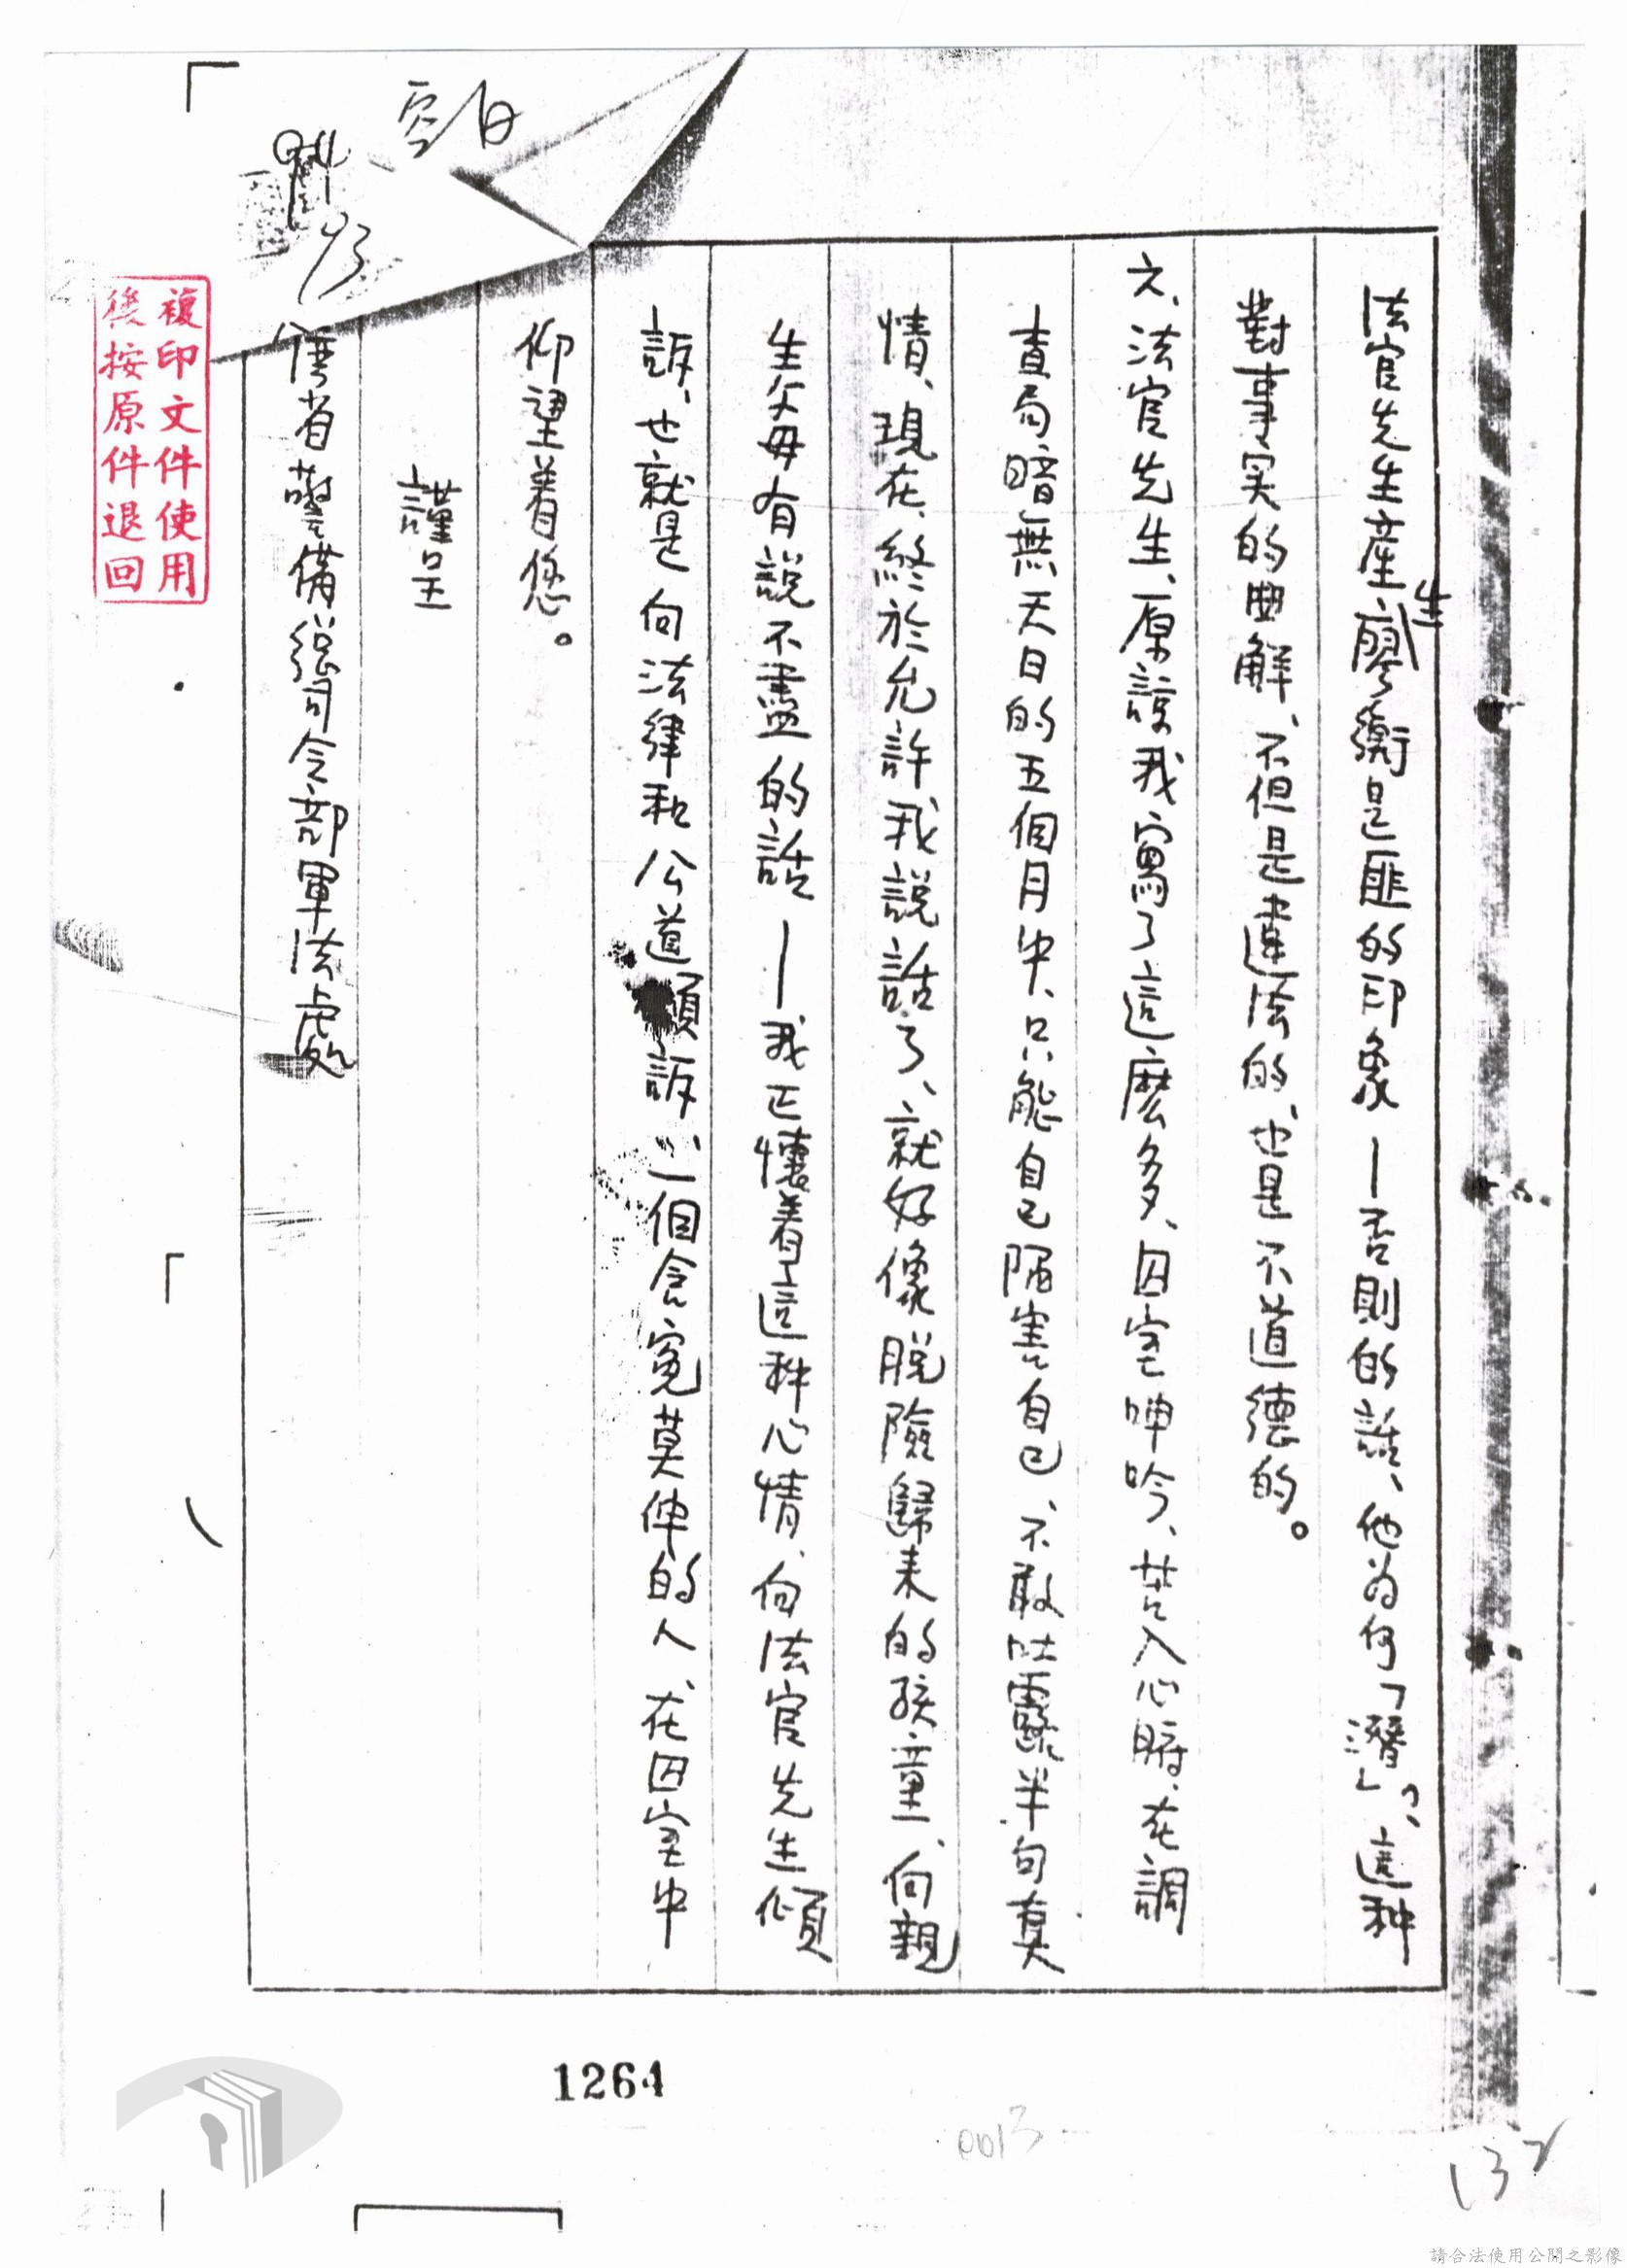 法官先生產生廖衡是匪的印象—否則的話、他為何「潛」？、這种
對事实的曲解、不但是違法的、也是不道德的。
六、法官先生、原諒我寫了這麽多、囚室呻吟、苦入心腑、在調
查局暗無天日的五個月中、只能自己陷害自己、不敢吐露半句真
情、現在、終於允許我說話了、就好像脫險歸来的孩童、向親
生父母有說不盡的話—我正懷着這种心情、向法官先生傾
訴、也就是向法律和公道傾訴、一個含冤莫伸的人、在囚室中
仰望着您。
謹呈
湾省警備総司令部軍法處
空白
複印文件使用
後按原件退回
1264
0013
132
請合法使用公開之影像